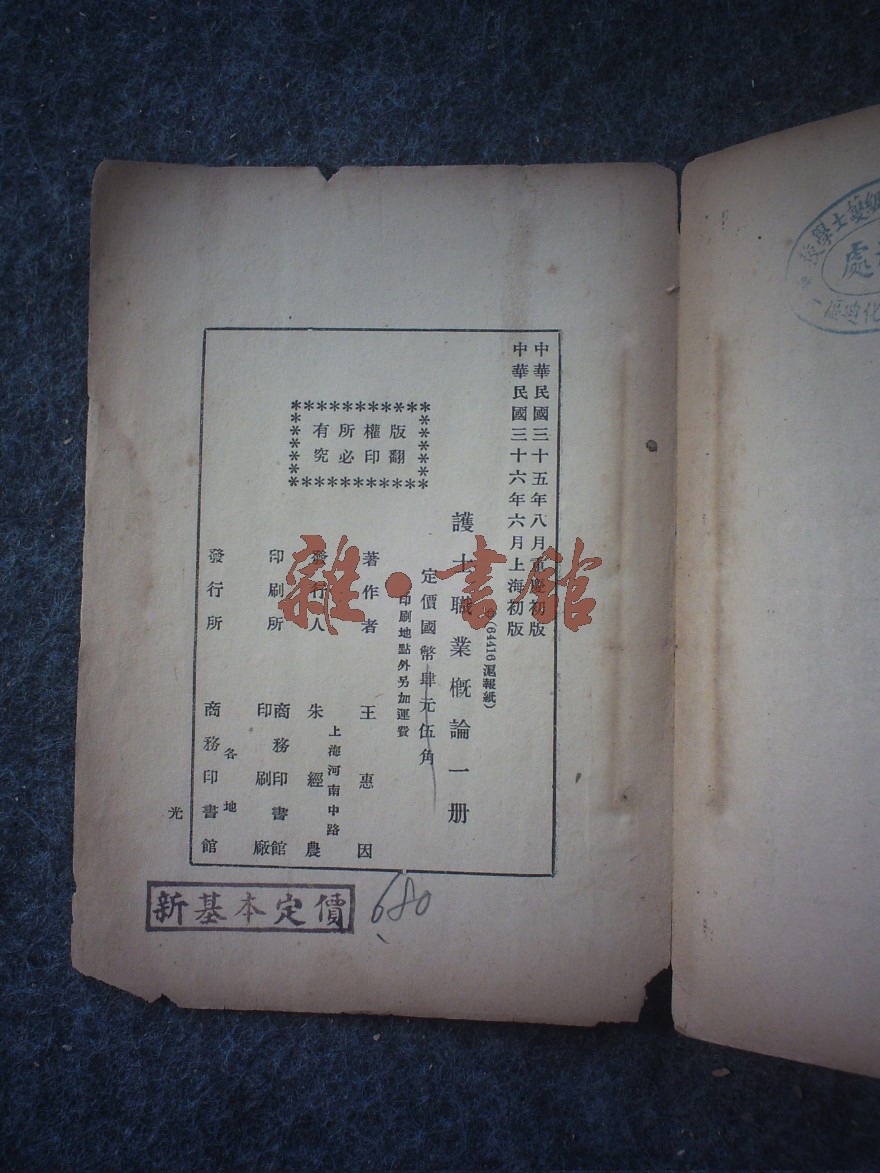 中華民國三十五年八月重慶初版
中華民國三十六年六月上海初版
(64416滬報紙)
護士職業概論一册
定價國幣肆元伍角
印刷地點外另加運費
版權所有
翻印必究
著作者 王惠因
上海河南中路
發行人 朱經農
印刷所 商務印書館印刷廠
發行所 商務印書館
各地
光
新基本定價
680
雜·書館